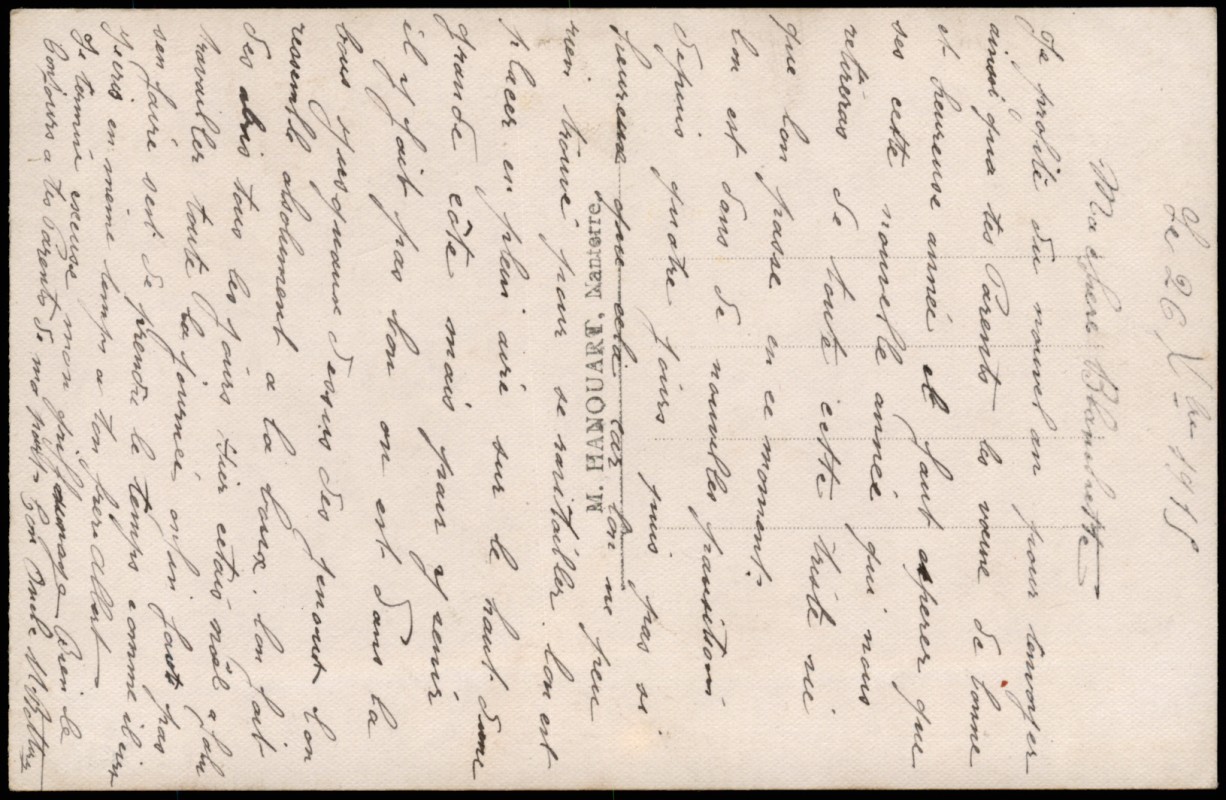 Le 26 Xbre 1915
Ma chere Blanchette
Je profite du nouvel an pour tenvoyer
ainsi qua tes Parents les voeux de bonne
et heureuse année il faut esperer que
ses cette nouvelle année qui nous
retireras de toute cette triste vie
que lon passe en ce moment.
lon est dans de nouvelles positions
depuis quatre jours mais pas si
heureux que cela car lon ne peu
rien trouvé pour se ravitailler. lon est
placer en plein aire sur le haut dune
grande côte mais pour y venir
il y fait pas bon on est dans la
boue jusquaux dessus des genoux lon
ressemble absolument a la boue. lon fait
des abris tous les jours hier cetais noël a falu
travailler toute la journée enfin fauts pas
sen faire sert de prendre le temps comme il vien
Jecris en même temps a ton frere Albert
Je termine excuse mon grifounage Bien le
Bonjours a tes Parents de ma part Ton Oncle
M. HANOUART, Nanterre.